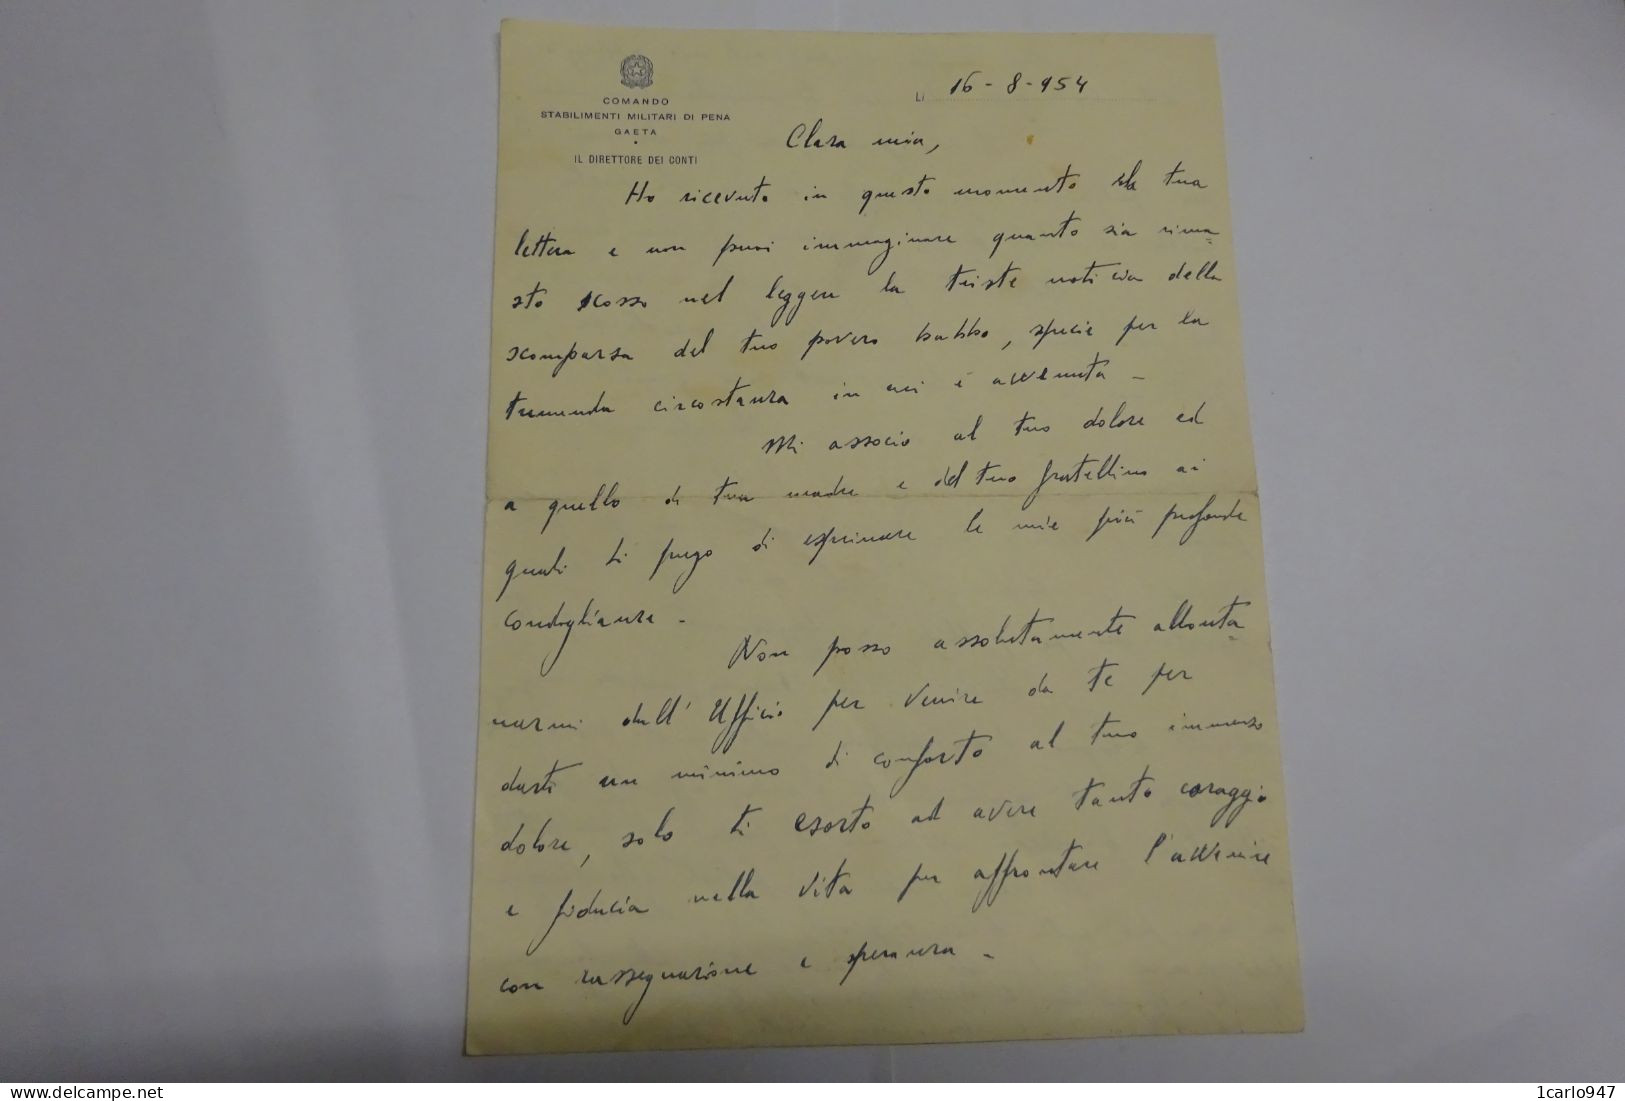 COMANDO
STABILIMENTI MILITARI DI PENA
GAETA
IL DIRETTORE DEI CONTI
LI 16-8-954
Clara mia,
Ho ricevuto in questo momento la tua
lettera e non puoi immaginare quanto sia rima=
sto scosso nel leggere la triste notizia della
scomparsa del tuo povero babbo, specie per la
tremenda circostanza in cui è avvenuta -
Mi associo al tuo dolore ed
a quello di tua madre e del tuo fratellino ai
quali ti prego di esprimere le mie più profonde
condoglianze -
Non posso assolutamente allonta=
narmi dall'Ufficio per venire da te per
darti un minimo di conforto al tuo immenso
dolore, solo ti esorto ad avere tanto coraggio
e fiducia nella vita per affrontare l'avvenire
con rassegnazione e speranza -
delcampe.net
1carlo947